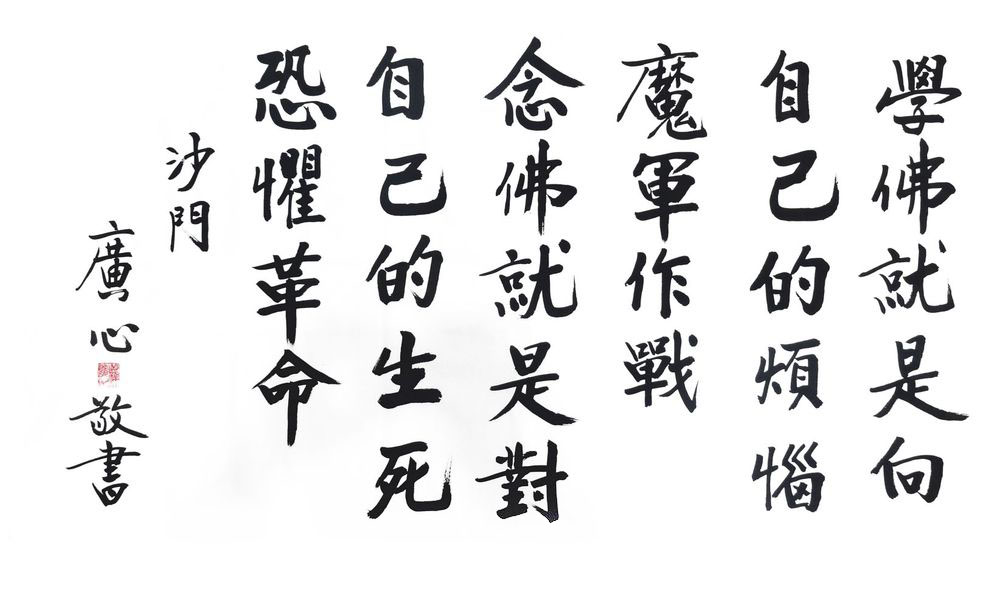 學佛就是向
自己的煩惱
魔軍作戰
念佛就是對
自己的生死
恐懼革命
沙門
廣心敬書